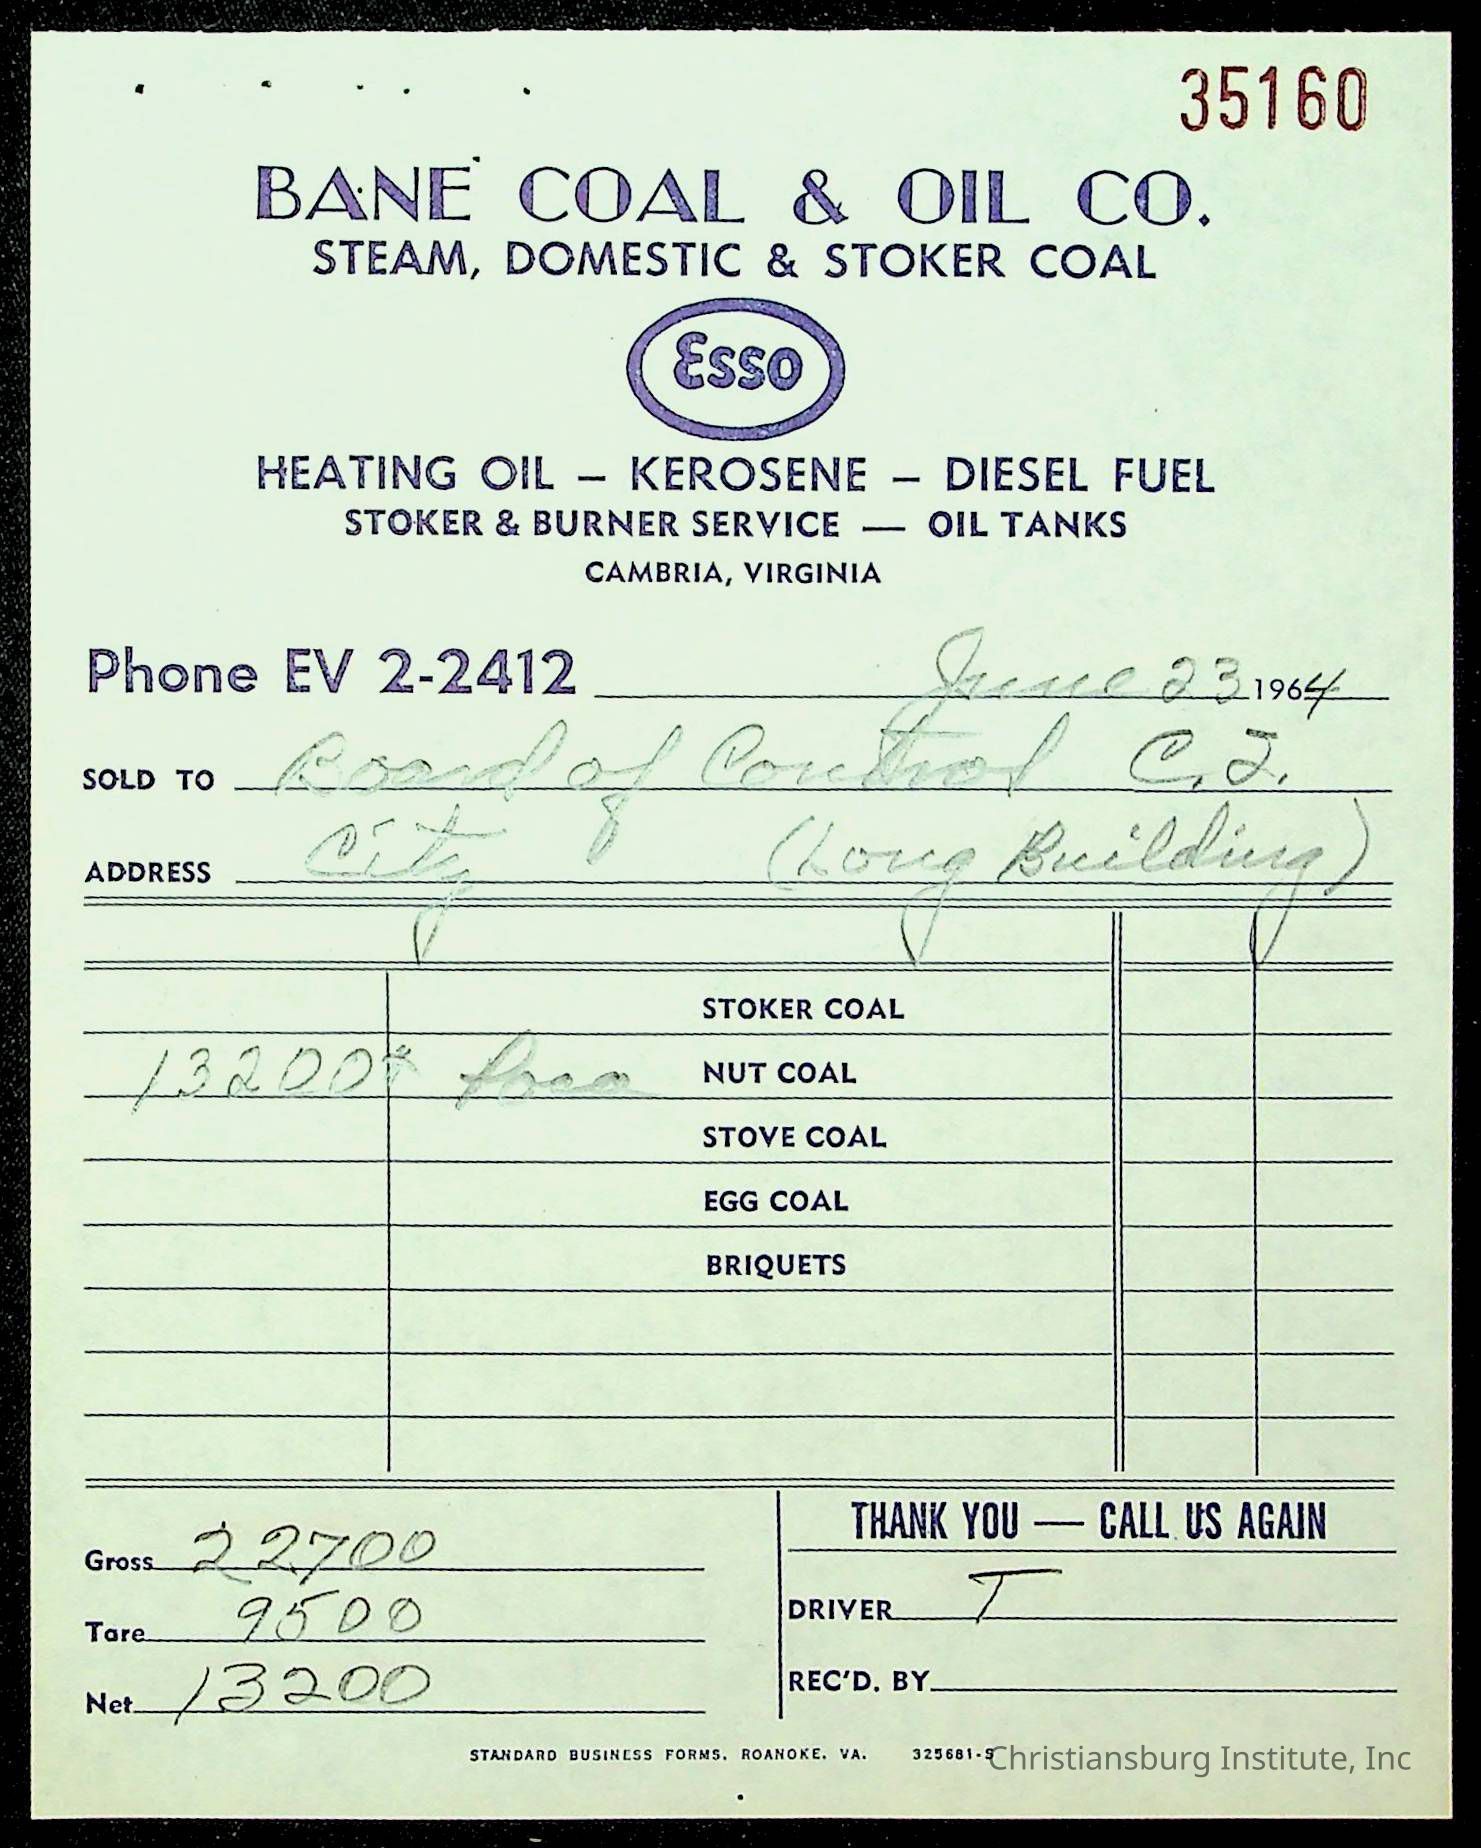 35160
BANE COAL & OIL CO.
STEAM, DOMESTIC & STOKER COAL
Esso
HEATING OIL – KEROSENE – DIESEL FUEL
STOKER & BURNER SERVICE — OIL TANKS
CAMBRIA, VIRGINIA
Phone EV 2-2412 June 23 1964
SOLD TO Board of Control C.I.
ADDRESS City (Long Building)
STOKER COAL
13200# Poca NUT COAL
STOVE COAL
EGG COAL
BRIQUETS
THANK YOU — CALL US AGAIN
Gross 22700
Tare 9500
Net 13200
DRIVER T
REC'D. BY
STANDARD BUSINESS FORMS, ROANOKE, VA. 325681-S
Christiansburg Institute, Inc